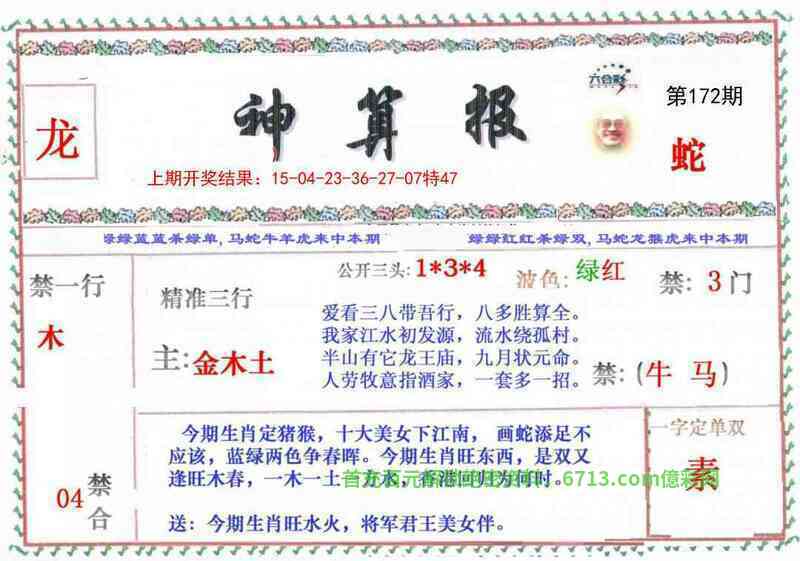 六合彩
第172期
龙
神算报
蛇
上期开奖结果：15-04-23-36-27-07特47
绿绿蓝蓝杀绿单,马蛇牛羊虎来中本期
绿绿红红杀绿双,马蛇龙猴虎来中本期
禁一行
木
精准三行
主:金木土
公开三头:1*3*4
波色:绿红
禁:3门
爱看三八带吾行，八多胜算全。
我家江水初发源，流水绕孤村。
半山有它龙王庙，九月状元命。
人劳牧意指酒家，一套多一招。
禁:(牛 马)
04
禁合
今期生肖定猪猴，十大美女下江南， 画蛇添足不
应该，蓝绿两色争春晖。今期生肖旺东西，是双又
逢旺木春，一木一土于力水，香港回归为何时。
6713.com億彩网
送：今期生肖旺水火，将军君王美女伴。
一字定单双
素